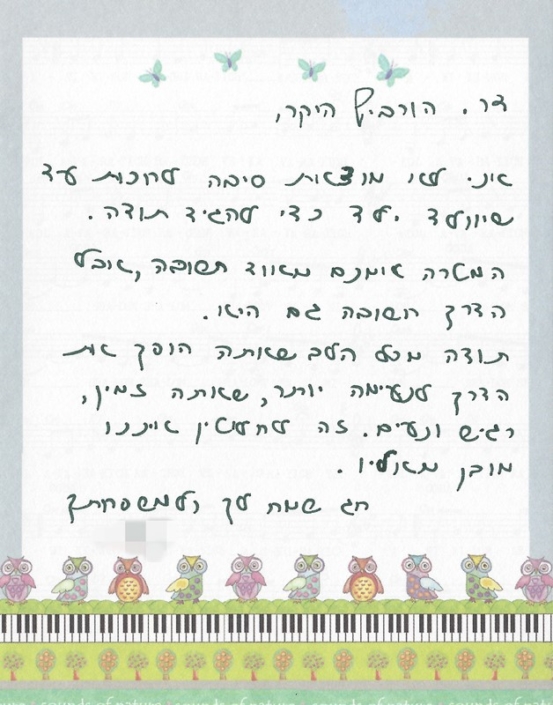 דר. הורביץ היקר,
אני לא מוצאת סיבה לחכות עד
שיוולד ילד כדי להגיד תודה.
המטרה אומנם מאווד חשובה, אבל
הדרך חשובה גם היא.
תודה מכל הלב שאתה הופך את
הדרך לנעימה יותר, שאתה זמין,
רגיש ונעים. זה לחלוטין איננו
מובן מאליו.
חג שמח לך ולמשפחתך
sounds of nature